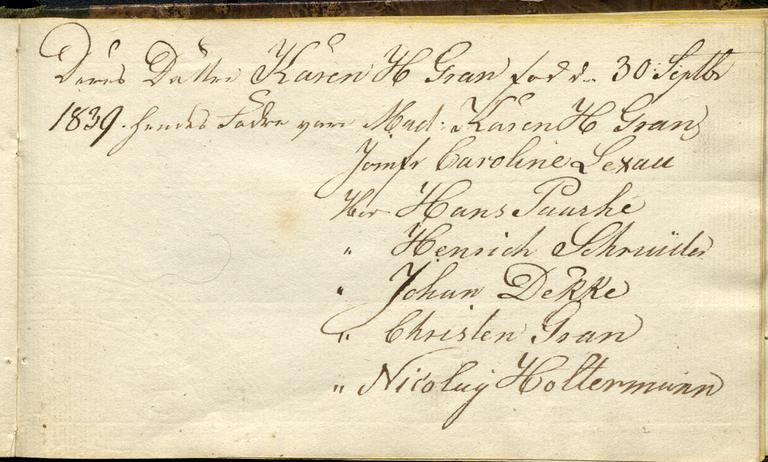 Deres Datter Karen H Gran fød d. 30 Septbr
1839. hendes Fadre vare Mad: Karen H Gran,
Jomfr Caroline Lexau
Her Hans Paashe
" Henrich Schrøder
" Johan Dekke
" Christen Gran
" Nicolay Holtermann